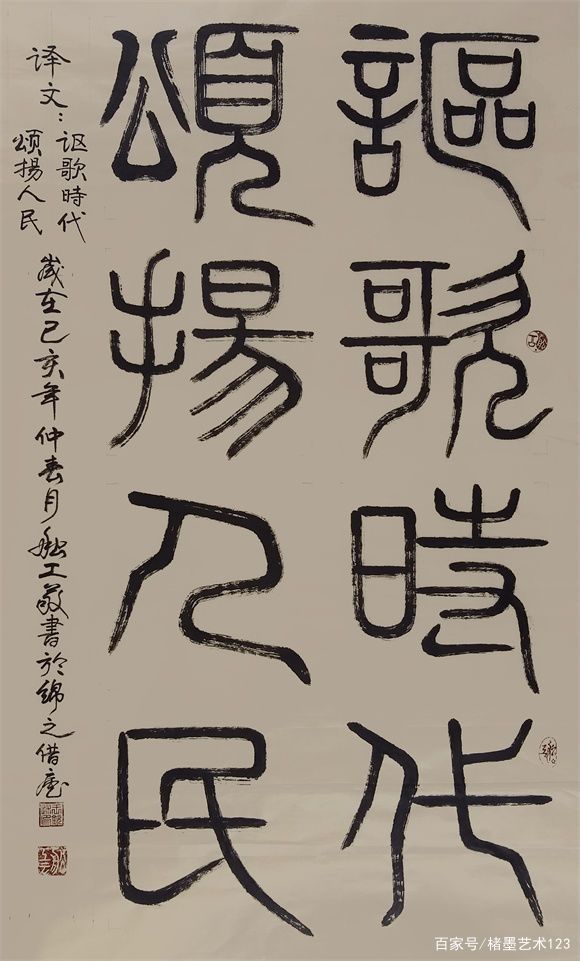 謳歌時代
頌揚人民
译文：讴歌時代
頌揚人民
岁在己亥年仲春月
工敬書於綿之借庵
百家号/楮墨艺术123